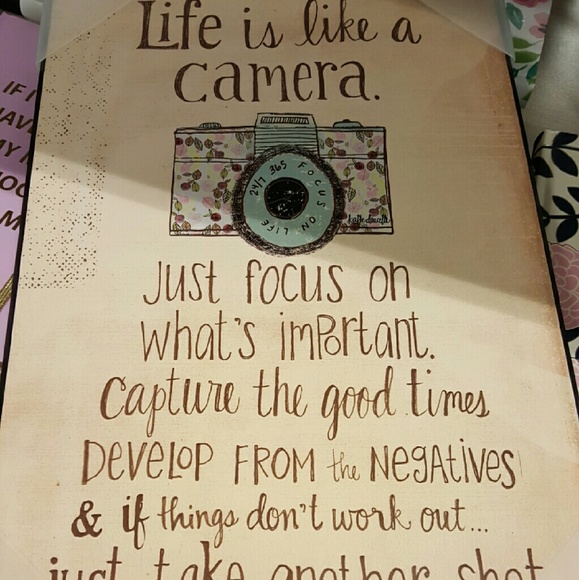 Life is like a
camera.
24/7 365 FOCUS ON LIFE
just focus on
what's important.
Capture the good times
DEVELOP FROM the NEGATIVES
& if things don't work out...
just take another shot
IF I
MY
M